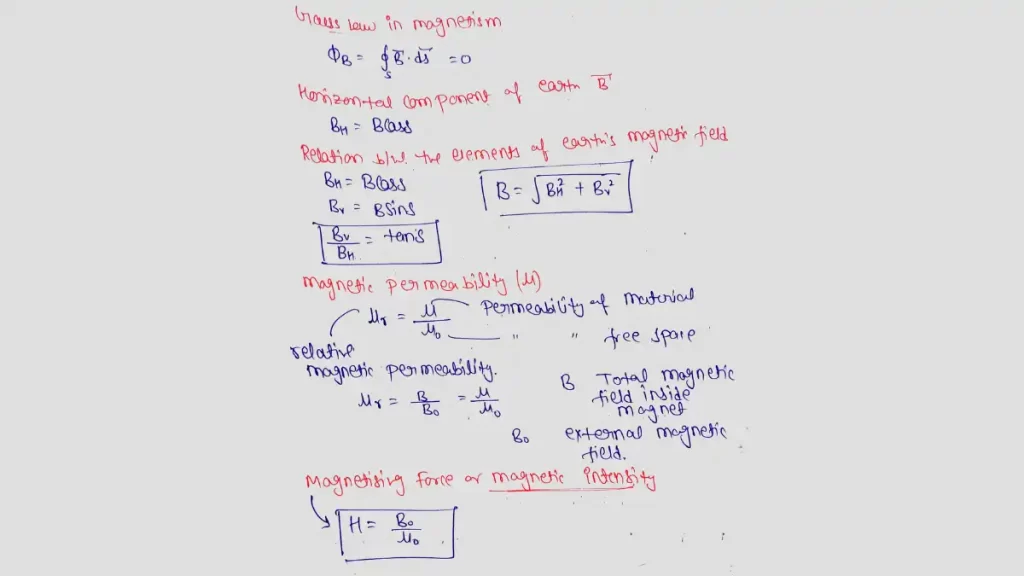 Gauss law in magnetism
ΦB = ∮S B̄·ds̄ = 0
Horizontal component of earth B̄
BH = Bcosδ
Relation b/w. the elements of earth's magnetic field
BH = Bcosδ
B = √(BH² + Bv²)
Bv = Bsinδ
Bv/BH = tanδ
Magnetic permeability (μ)
μr = μ/μ0 Permeability of material
" " free space
relative
magnetic permeability.
μr = B/B0 = μ/μ0
B Total magnetic
field inside
magnet
B0 external magnetic
field.
Magnetising force or magnetic intensity
H = B0/μ0